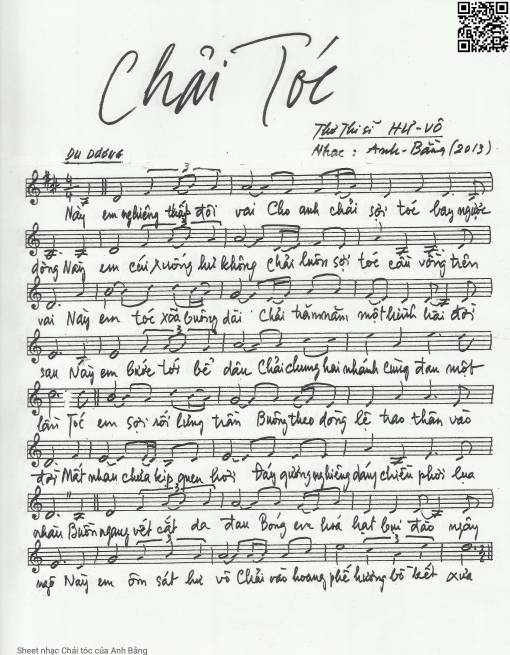 Chải Tóc
Thơ Thi sĩ HƯ-VÔ
DU DƯƠNG
Nhạc : Anh-Bằng (2013)
Này em nghiêng thấp đôi vai Cho anh chải sợi tóc bay ngược
dòng Này em cúi xuống hư không Chải luôn sợi tóc cầu vồng trên
vai Này em tóc xõa buông dài Chải trăm năm một hình hài đời
sau Này em bước tới bể dâu Chải chung hai nhánh cùng đau một
lần Tóc em sợi rối lưng trần Buông theo dòng lệ trao thân vào
đời Mất nhau chưa kịp quen hơi Đáy gương nghiêng dáng chiều phơi lụa
nhàu Buồn ngang vết cắt da đau Bóng em hoá hạt bụi đào ngây
ngô Này em ôm sát hư vô Chải vào hoang phế hương bồ kết xưa
Sheet nhạc Chải tóc của Anh Bằng